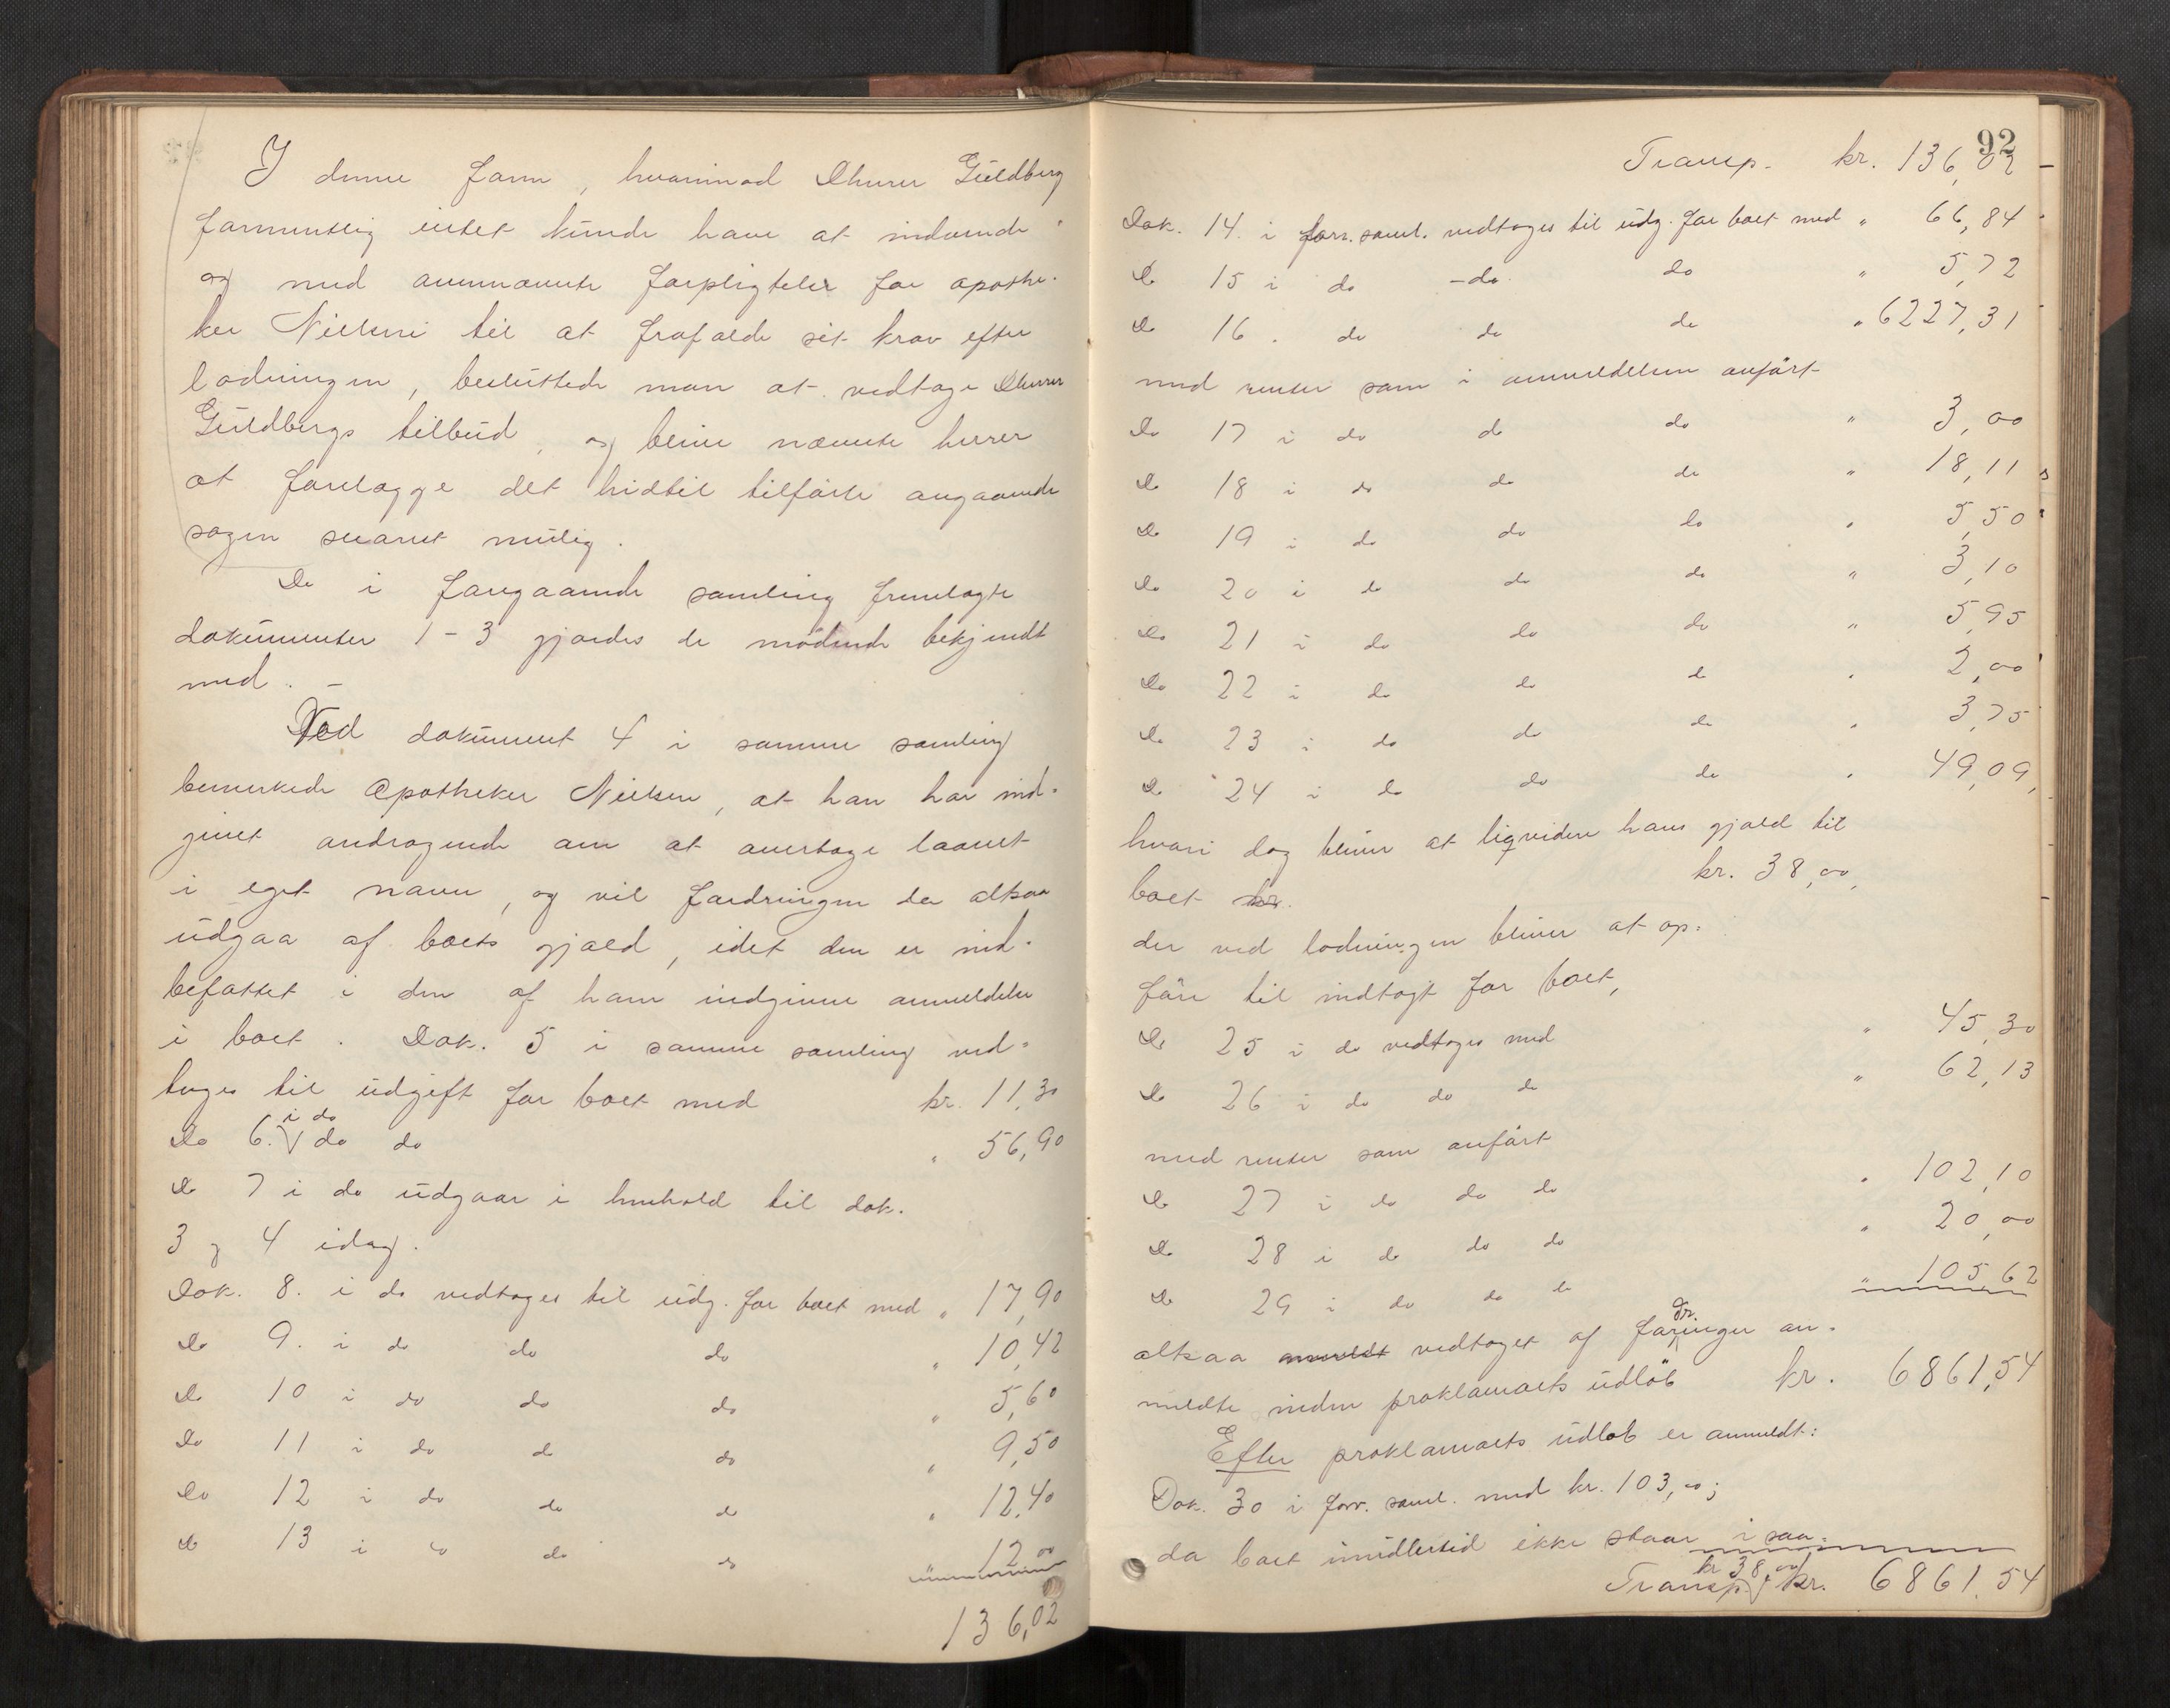 I denne form, hvorimod Dhrrer Güldberg
formentlig intet kunde have at indvende
og med ovennævnte forpligtelse for apothe-
ker Nielsen til at frafalde sit krav efter
lodningen, besluttede man at vedtage Dhrrer
Güldbergs tilbud, og bline nævnte herrer
at forelægge det hidtil tilførte angaaende
sagen snarest mulig.
De i foregaaende samling fremlagte
dokumenter 1-3 gjordes de mødende bekjendt
med. –
Ved dokument 4 i samme samling
bemerkede Apotheker Nielsen, at han har ind-
givet andragende om at overtage laanet
i eget navn, og vil fordringen da altsaa
udgaa af boets gjæld, idet den er ind-
befattet i den af ham indgivne anmeldelse
i boet. Dok. 5 i samme samling ved-
toges til udgift for boet med kr. 11,30
Do 6. i do do do " 56,90
Do 7 i do udgaar i henhold til dok.
3 og 4 idag.
Dok. 8. i do vedtoges til udg. for boet med " 17,90
Do 9. i do do do " 10,42
Do 10 i do do do " 5,60
Do 11 i do do do " 9,50
Do 12 i do do do " 12,40
Do 13 i do do do " 12,00
136,02
92
Transp. kr. 136,02
Dok. 14. i forr. saml. vedtoges til udg. for boet med " 66,84
Do 15 i do - do do " 5,72
Do 16. do do do " 6227,31
med renter som i anmeldelsen anført
Do 17 i do do do " 3,00
Do 18 i do do do " 18,11
Do 19 i do do do " 5,50
Do 20 i do do do " 3,10
Do 21 i do do do " 5,95
Do 22 i do do do " 2,00
Do 23 i do do do " 3,75
Do 24 i do do do " 49,09,
hvori dog bliver at liqvidere hans gjæld til
boet kr. kr. 38,00,
der ved lodningen bliver at op-
føre til indtægt for boet,
Do 25 i do vedtoges med " 45,30
Do 26 i do do do " 62,13
med renter som anført
Do 27 i do do do " 102,10
Do 28 i do do do " 20,00
Do 29 i do do do " 105,62
altsaa anmeldt vedtaget af fordringer an-
meldte inden proklamaets udløb kr. 6861,54
Efter proklamaets udløb er anmeldt:
Dok. 30 i forr. saml. med kr. 103,00;
da boet imidlertid ikke staar i saa-
kr 38,00
Transp. kr. 6861,54